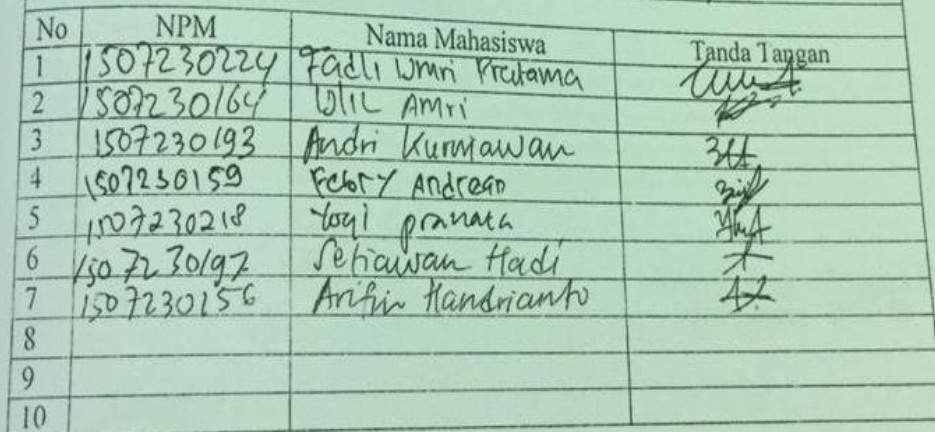 No NPM Nama Mahasiswa Tanda Tangan
1 1507230224 Fadli Umri Pratama
2 1507230164 Ulil Amri
3 1507230193 Andri Kurniawan
4 1507230159 Andrean
5 1507230218 Yogi pranata
6 1507230197 Setiawan Hadi
7 1507230156 Arifin Handrianto
8
9
10